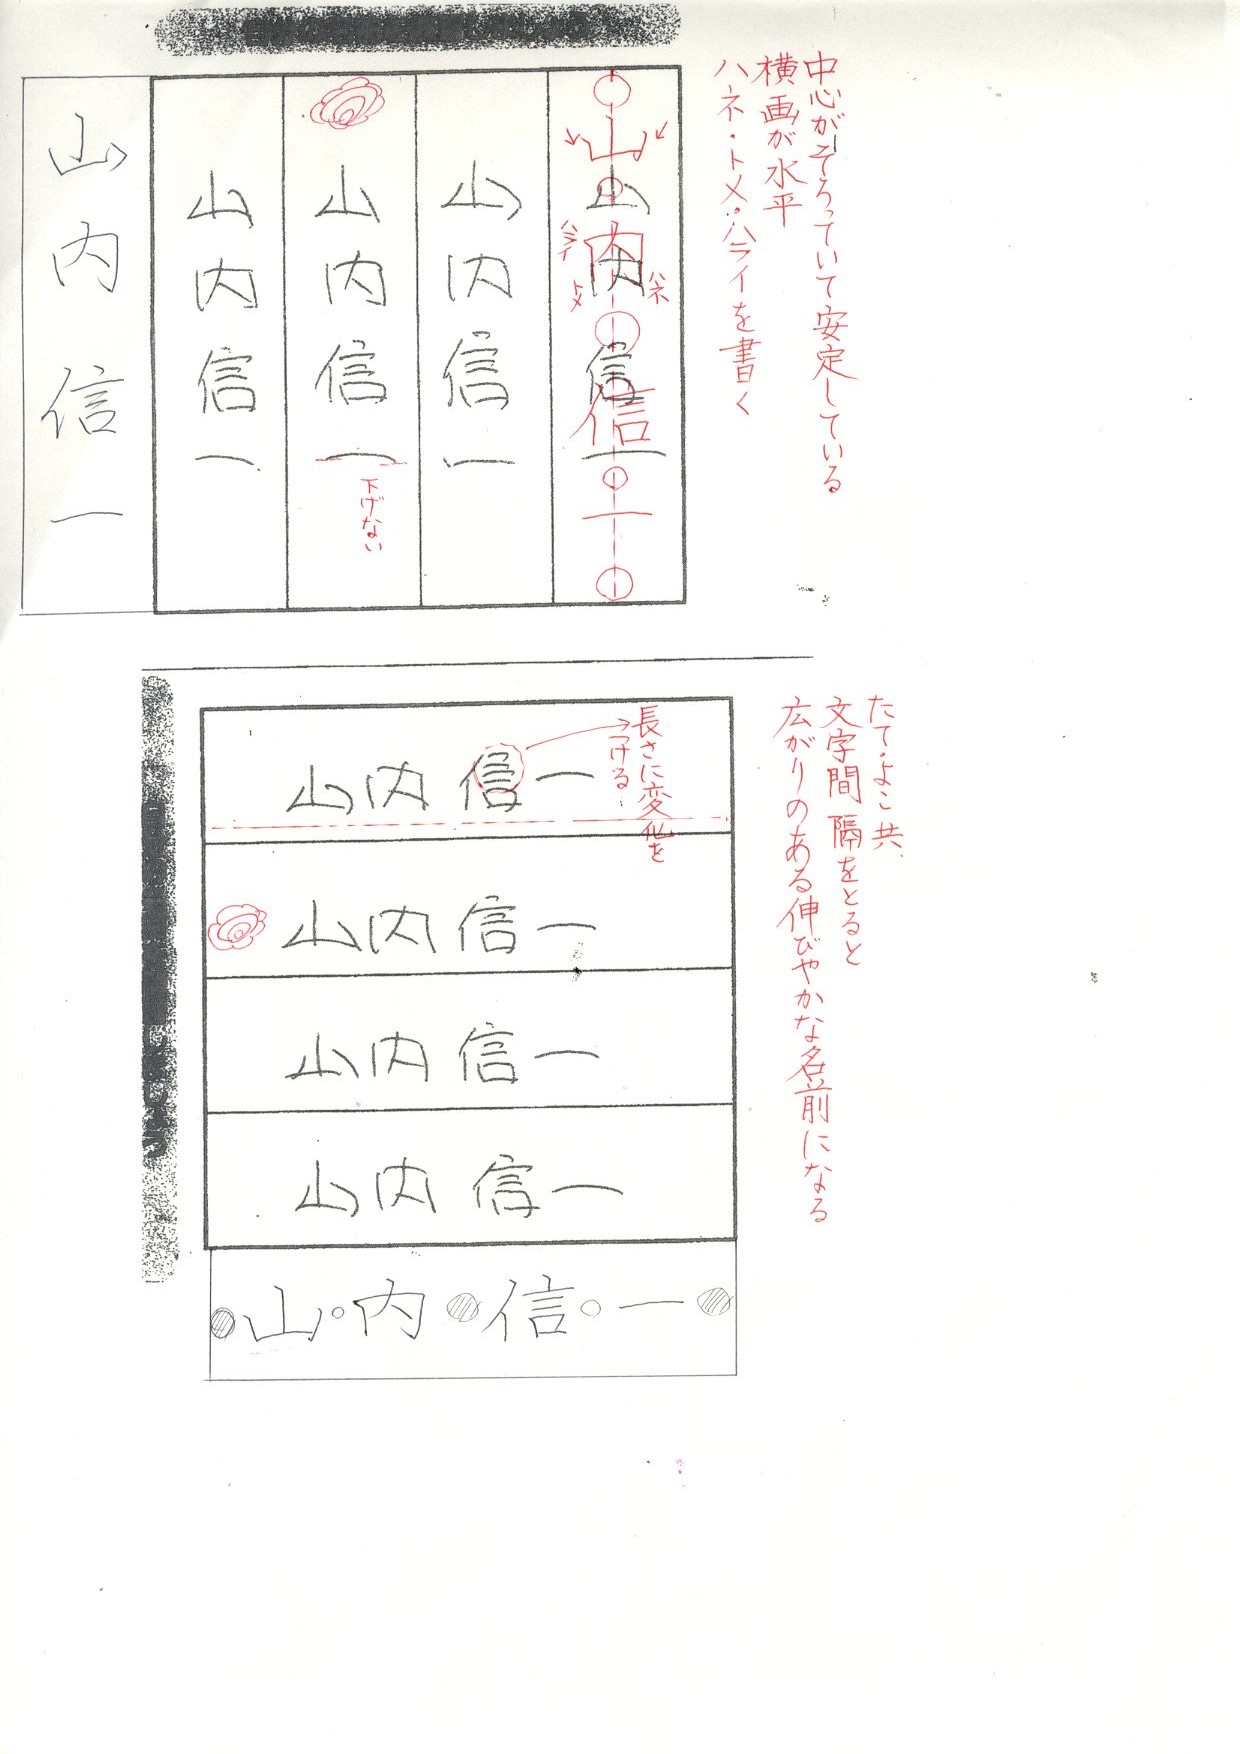 中心がそろっていて安定している
横画が水平
ハネ・トメ・ハライを書く
山内信一
山内信一
ハライ
トメ
ハネ
山内信一
山内信一
下げない
山内信一
山内信一
たて・よこ共、
文字間隔をとると
広がりのある伸びやかな名前になる
長さに変化を
つける
山内信一
山内信一
山内信一
山内信一
山内信一